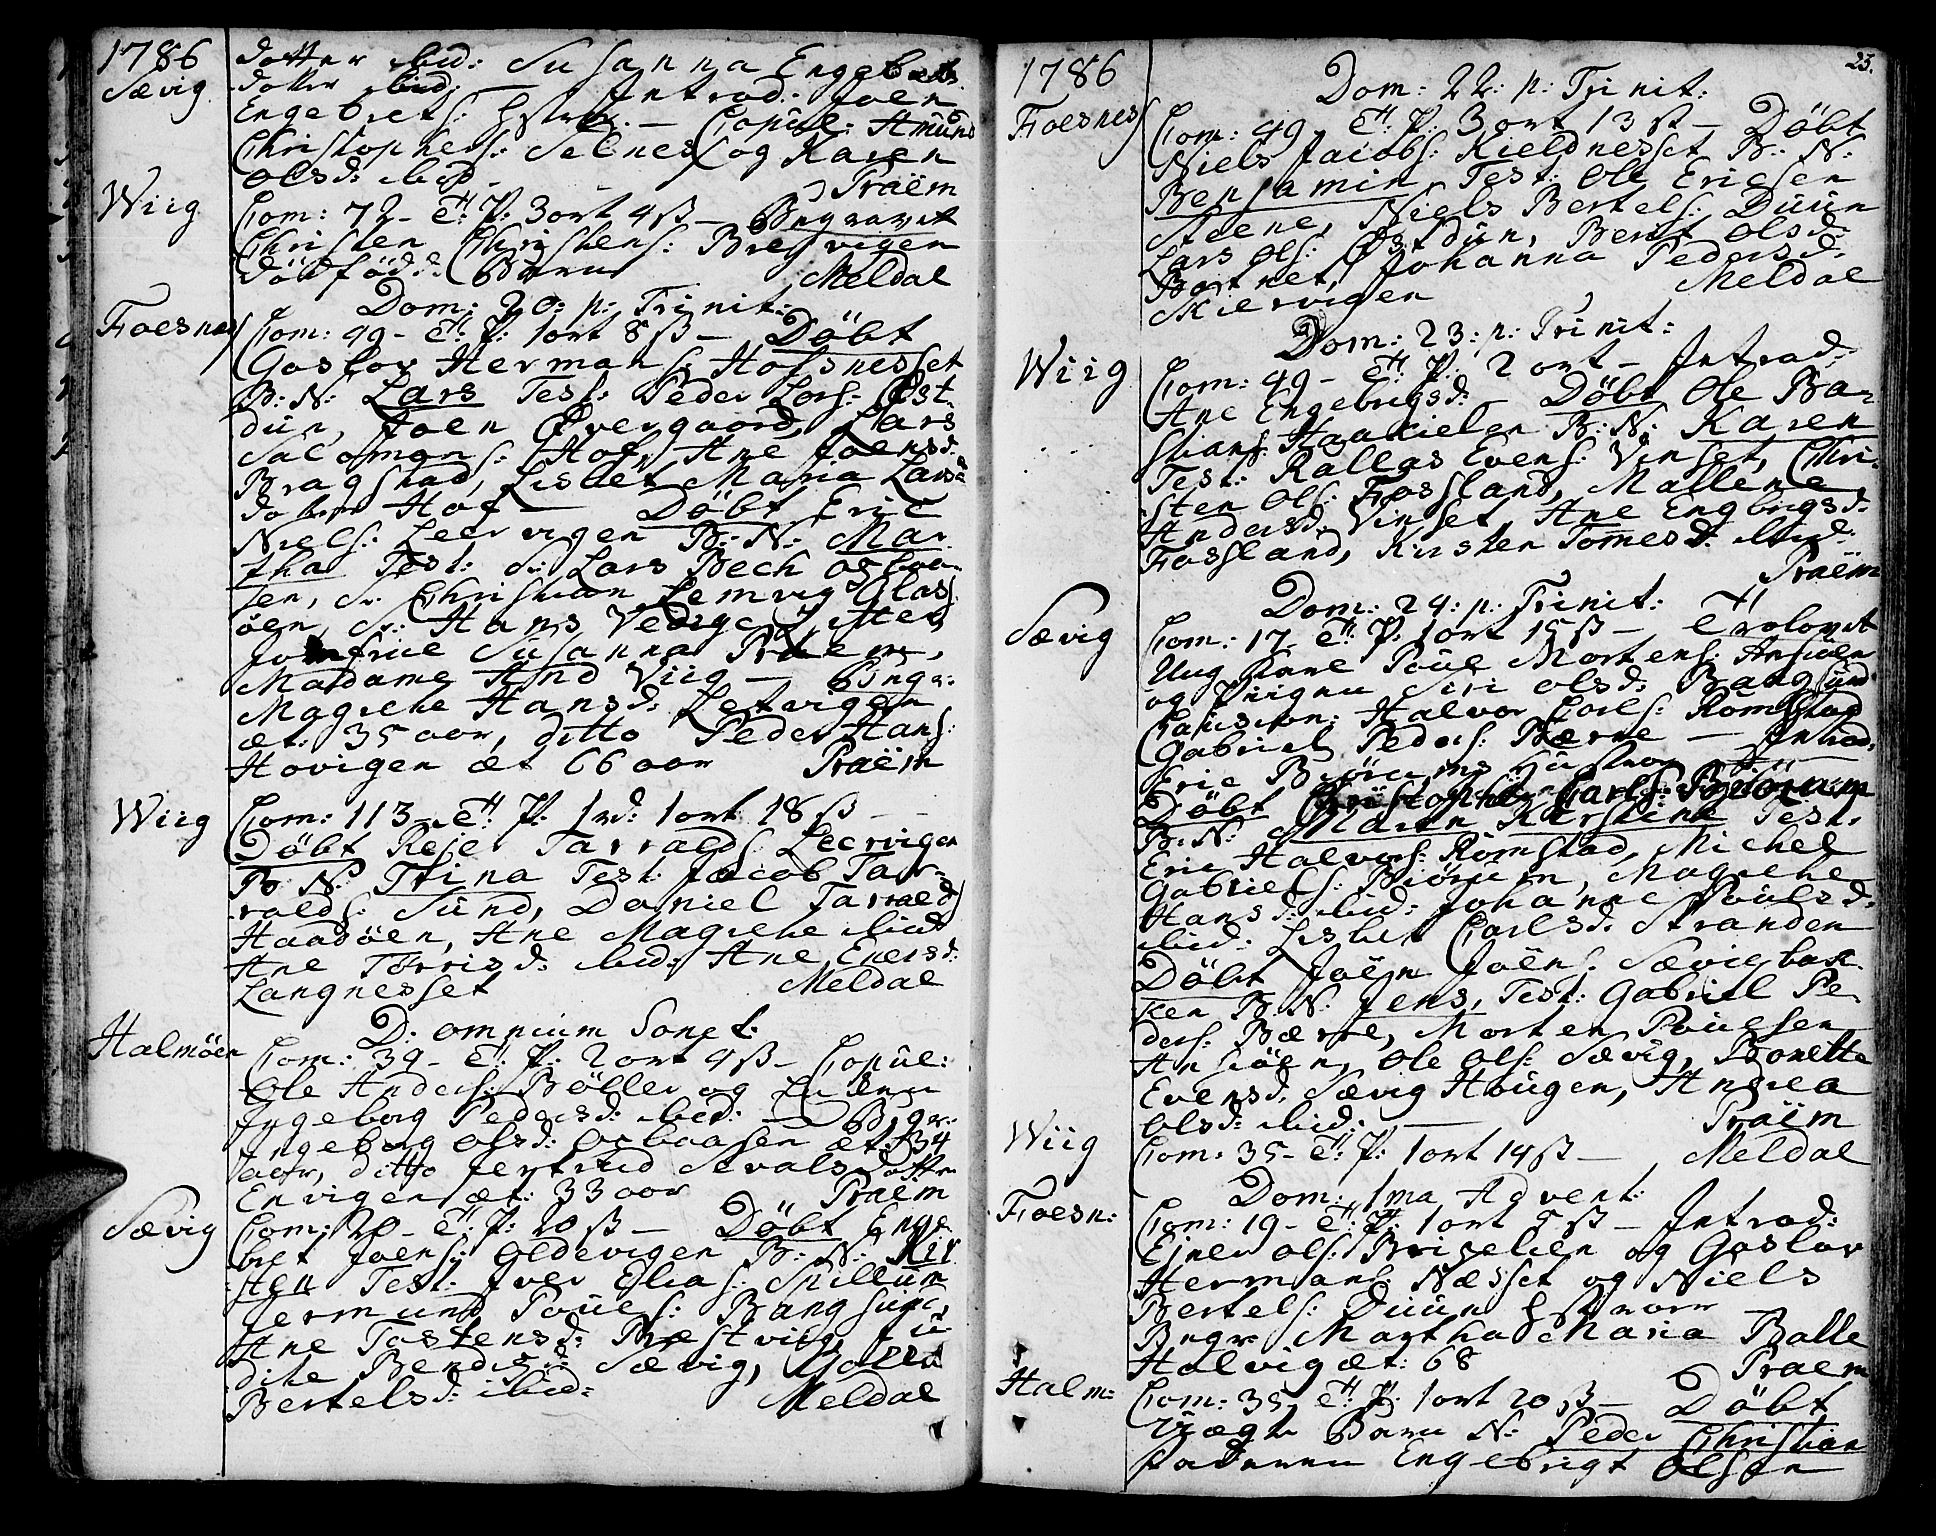 1786
Sævig
dotter ibid: Susanna Engebrets
dotter ibid: — Introd: Joen
Engebrets: Hstr: — Copul: Amund
Christophers: Selnes og Karen
Olsd: ibid. Præm
Wiig
Com: 72 - Th: P: 3 ort 4 ß — Begravet
Christen Christens: Bresvigen
dödföd: Barn Meldal
Dom: 20: p: Trinit:
Foesnes
Com: 99 - Th: P: 1 ort 8 ß — Döbt
Goslov Hermans: Hofsnesset
B: N: Lars Test: Peder Lars: Øst
duun, Joen Øvergaord, Lars
Salomons: Hof, Ane Joensd:
Bragstad, Lisbet Maria Lars
dotter Hof — Döbt Eric
Niels: Leervigen B: N: Mar
tha Test: Sr. Lars Bech Osbaa-
sen, Sr. Christian Lemvig Glas
öen, Sr: Hans Vedege
Jomfrue Susanna Præm,
Madame And Viig — Begr:
Magrehe Hansd: Setvigen
æt: 35 aar, ditto Peder Hans:
Hovigen æt 66 aar Præm
Wiig
Com: 113 - Th: P: 1 rd: 1 ort 18 ß —
Döbt Reje Tarralds Leervigen
B: N: Trina Test: Jacob Tar-
ralds: Sund, Daniel Tarrald
Haadöen, Ane Magrehe ibid
Ane Törrisd: ibid: Ane Enersd:
Langnesset Meldal
D: omnium Sanct:
Halmöen
Com: 39 - Th: P: 2 ort 4 ß — Copul:
Ole Anders: Böller og Enken
Ingeborg Pedersd: ibid: — Begr:
Ingeborg Olsd: Osbaasen æt: 34
aar, ditto Jertrud Sevalsdotter
Envigen æt: 33 aar Præm
Sævig
Com: 20 - Th: P: 20 ß — Döbt Enge-
bret Joens: Oldevigen B: N: Kir
sten Test: Iver Elias: Spillum
Jermund Poues: Bangsund,
Ane Tostensd: Præstviig, Ju-
dite Bendigsd: Sævig,
Bertelsd: ibid: Meldal
25.
1786
Dom: 22: p: Trinit:
Foesnes
Com: 49 Th: P: 3 ort 13 ß — Döbt
Niels Jacobs: Kieldnesset B: N:
Benjamin, Test: Ole Ericsen
Steene, Niels Bertels: Duun
Lars Ols: Østduun, Beret Olsd:
Bortnet, Johanna Pedersd:
Skiervigen Meldal
Dom: 23: p: Trinit:
Wiig
Com: 49 - Th: P: 2 ort — Introd:
Ane Engebrigsd: — Döbt Ole Ba-
stians: Haakielen B: N: Karen
Test: Rallas Evens: Vinset, Chri-
sten Ols: Fossland, Mallene
Andersd: Vinset, Ane Engbrigsd:
Fossland, Kirsten Tomesd: ibid:
Præm
Dom: 24: p: Trinit:
Sævig
Com: 17 Th: P: 1 ort 15 ß — Trolovet
Ung Karl Poue Mortens: Ansöen
og Piigen Siri Olsd: Bangsund
Caution: Halvor Carls: Romstad
Gabriel Peders: Bærre — Introd:
Eric Biörums Hustroe —
Döbt Christopher Carls: Biörum
B: N: Maren Kirstine Test:
Eric Halvors: Romstad, Michel
Gabriels: Biörum, Magrehe
Hansd: ibid: Johanne Poulsd:
ibid: Lisbet Carlsd: Stranden
Döbt Joen Joens: Sævigbak-
ken B: N: Jens, Test: Gabriel Pe-
ders: Bærre, Morten Pouesen
Ansöen, Ole Ols: Sævig, Bonette
Evensd: Sævig Hougen, Andrea
Olsd: ibid: — Præm
Wiig
Com: 35 - Th: P: 1 ort 14 ß — Meldal
Dom: 1ma Advent:
Foesn:
Com: 19 - Th: P: 1 ort 5 ß — Introd:
Ejner Ols: Briselien og Goslov
Hermans: Næsset og Niels
Bertels: Duun Hstroer —
Begr: Martha Maria Balle
Halvig æt: 68 Præm
Halm:
Com: 35 Th: P: 1 ort 20 ß — Döbt
Uægte Barn N: Peder Christian
Faderen Engebrigt Olsen